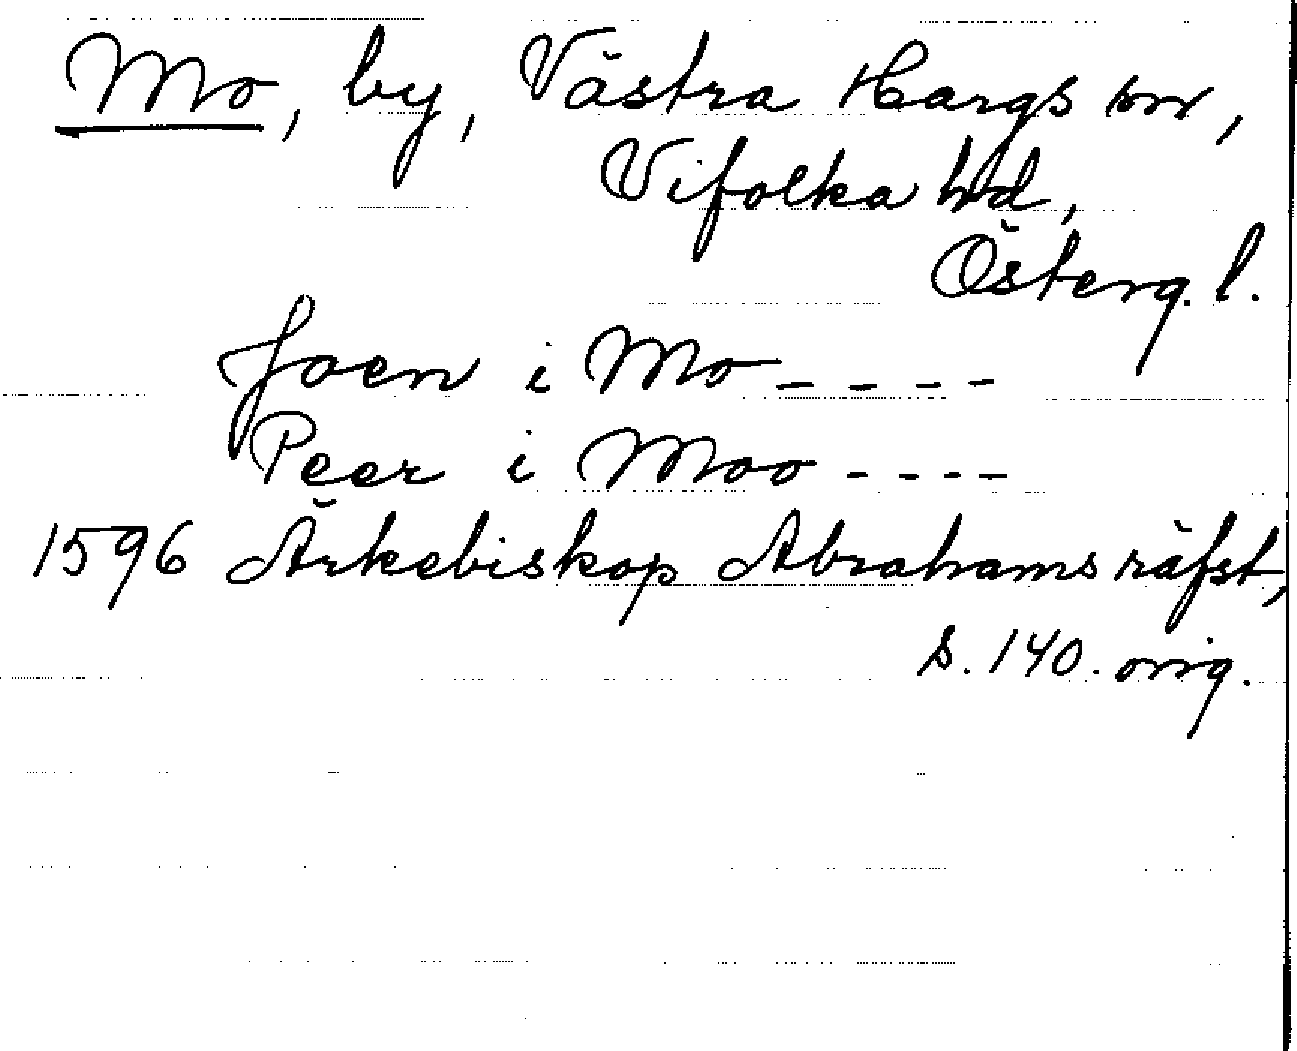 Mo, by, Västra Hargs sn,
Vifolka hd,
Österg. l.
Joen i Mo - - - -
Peer i Moo - - - -
1596 Ärkebiskop Abrahams räfst,
s. 140. orig.